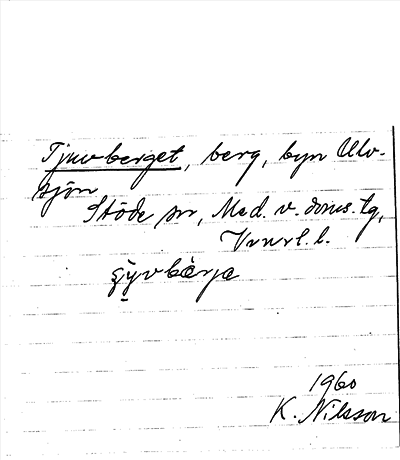 Tjuvberget, berg, byn Ulv-
sjön
Stöde sn, Med. v. doms. tg,
Vnrl. l.
1960
K. Nilsson